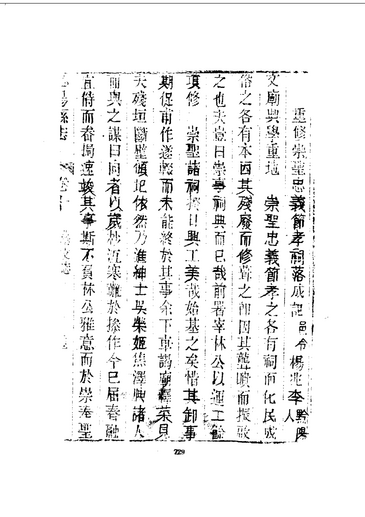 重修崇聖忠義節孝祠落成記 邑令楊兆李黔陽人
文廟興學重地 崇聖忠義節孝之各有祠而化民成
俗之各有本因其殘廢而修葺之卽因其聾瞶而振啟
之也夫豈曰崇事祠典而已哉前署宰林公以運工餘
項修 崇聖諸祠 興工美哉始基之矣惜其卸事
期促甫作遂輟而未能終於其事余下車謁廟釋菜見
夫殘垣斷壁傾圯依然乃進紳士吳榮姬焦澤與諸人
而與之謀曰向者以歲杪沍寒難於操作今已屆春融
宜僝而眷焉遠竣其事斯不負林公雅意而於崇奉聖
陽縣志 卷十 藝文志
729